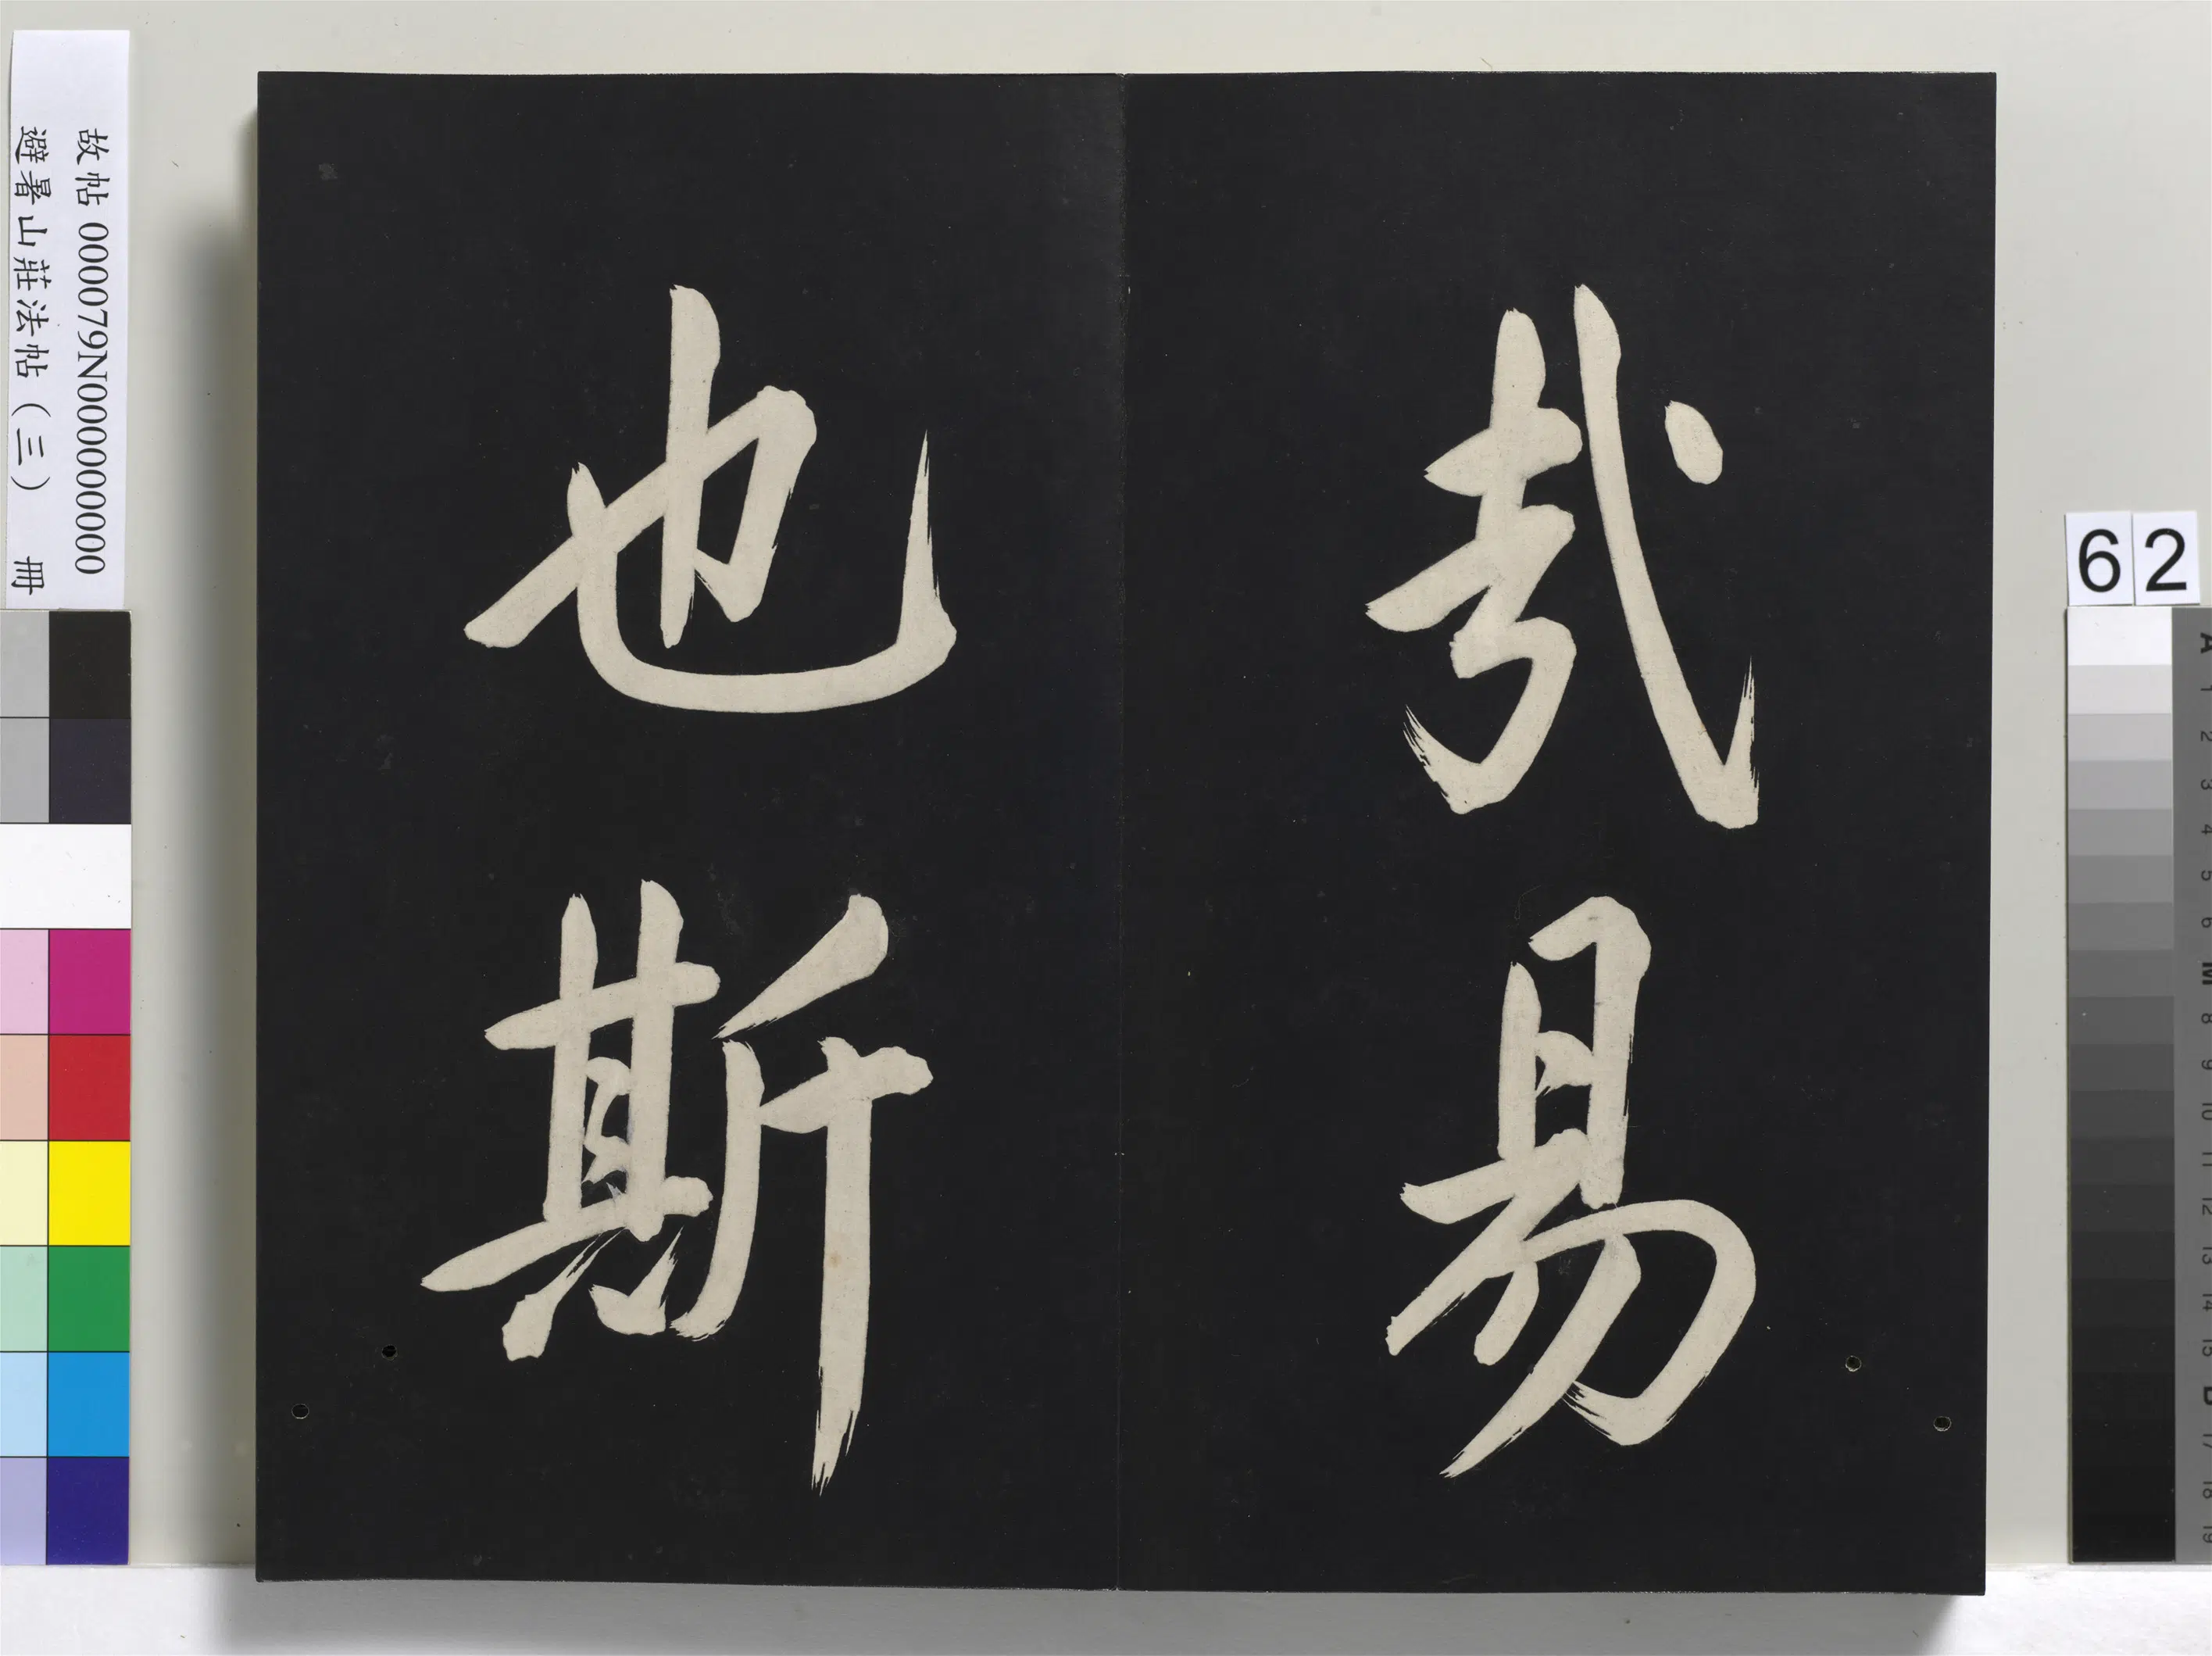 哉易
也斯
故帖 000079N000000000
避暑山莊法帖（三） 冊
62
A 1 2 3 4 5 6 M 8 9 10 11 12 13 14 15 B 17 18 19